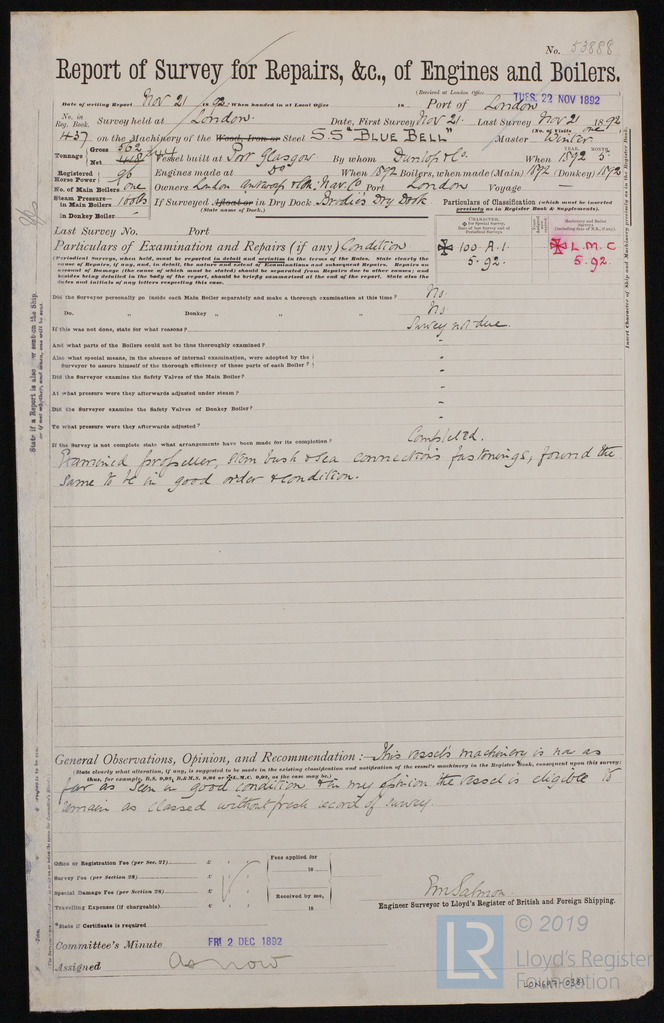 No. 53888
Report of Survey for Repairs, &c., of Engines and Boilers.
(Received at London Office
TUES. 22 NOV 1892
Date of writing Report Nov 21 18 92. When handed in at Local Office 18 Port of London
No. in Reg. Book. Survey held at London. Date, First Survey Nov 21. Last Survey Nov 21 1892
(No. of Visits one)
437 on the Machinery of the Wood, Iron or Steel S.S "BLUE BELL" Master Winter.
Tonnage Gross 562 Net 418 344 Vessel built at Port Glasgow By whom Dunlop & Co. When YEAR. 1892 MONTH 5.
Registered Horse Power 96 Engines made at Do When 1892 Boilers, when made (Main) 1892 (Donkey) 1892
No. of Main Boilers one Owners London Antwerp & Con: Nav. Co Port London Voyage —
Steam Pressure— in Main Boilers 160 lbs If Surveyed Afloat or in Dry Dock Brodies Dry Dock
(State name of Dock.)
in Donkey Boiler —
Particulars of Classification (which must be inserted precisely as in Register Book & Supplements).
Last Survey No. Port
CHARACTER.
Machinery and Boiler Surveys
Particulars of Examination and Repairs (if any) Condition
100.A.1.
5.92.
L.M.C
5.92.
(Periodical Surveys, when held, must be reported in detail and seriatim in the terms of the Rules. State clearly the
cause of Repairs, if any, and, in detail, the nature and extent of Examinations and subsequent Repairs. Repairs on
account of Damage (the cause of which must be stated) should be separated from Repairs due to other causes; and
besides being detailed in the body of the report, should be briefly summarised at the end of the report. State also the
dates and initials of any letters respecting this case.
Did the Surveyor personally go inside each Main Boiler separately and make a thorough examination at this time? No
Do. Donkey „ „ „ No
If this was not done, state for what reasons? Survey not due.
And what parts of the Boilers could not be thus thoroughly examined? -
Also what special means, in the absence of internal examination, were adopted by the
Surveyor to assure himself of the thorough efficiency of those parts of each Boiler? -
Did the Surveyor examine the Safety Valves of the Main Boiler? -
At what pressure were they afterwards adjusted under steam? -
Did the Surveyor examine the Safety Valves of Donkey Boiler? -
To what pressure were they afterwards adjusted? -
If the Survey is not complete state what arrangements have been made for its completion? Completed.
Examined propeller, stern bush & sea connections fastenings, found the
same to be in good order & condition.
General Observations, Opinion, and Recommendation :— This vessels machinery is now as
(State clearly what alteration, if any, is suggested to be made in the existing classification and notification of the vessel's machinery in the Register Book, consequent upon this survey;
thus, for example, B.S. 9,92, B.&M.S. 9,92 or L.M.C. 9,92, as the case may be.)
far as seen in good condition & in my opinion the vessel is eligible to
remain as classed without fresh record of survey.
Office or Registration Fee (per Sec. 27)
Survey Fee (per Section 28)
Special Damage Fee (per Section 28)
Travelling Expenses (if chargeable)
Fees applied for
18
Received by me,
18
E M Salmon
Engineer Surveyor to Lloyd's Register of British and Foreign Shipping.
State if Certificate is required
Committee's Minute FRI 2 DEC 1892
Assigned as now
LR
© 2019
Lloyd's Register
Foundation
State if a Report is also now sent on the Ship.
or if not whether, and when, one will be sent.
Insert Character of Ship and Machinery precisely as in the Register Book.